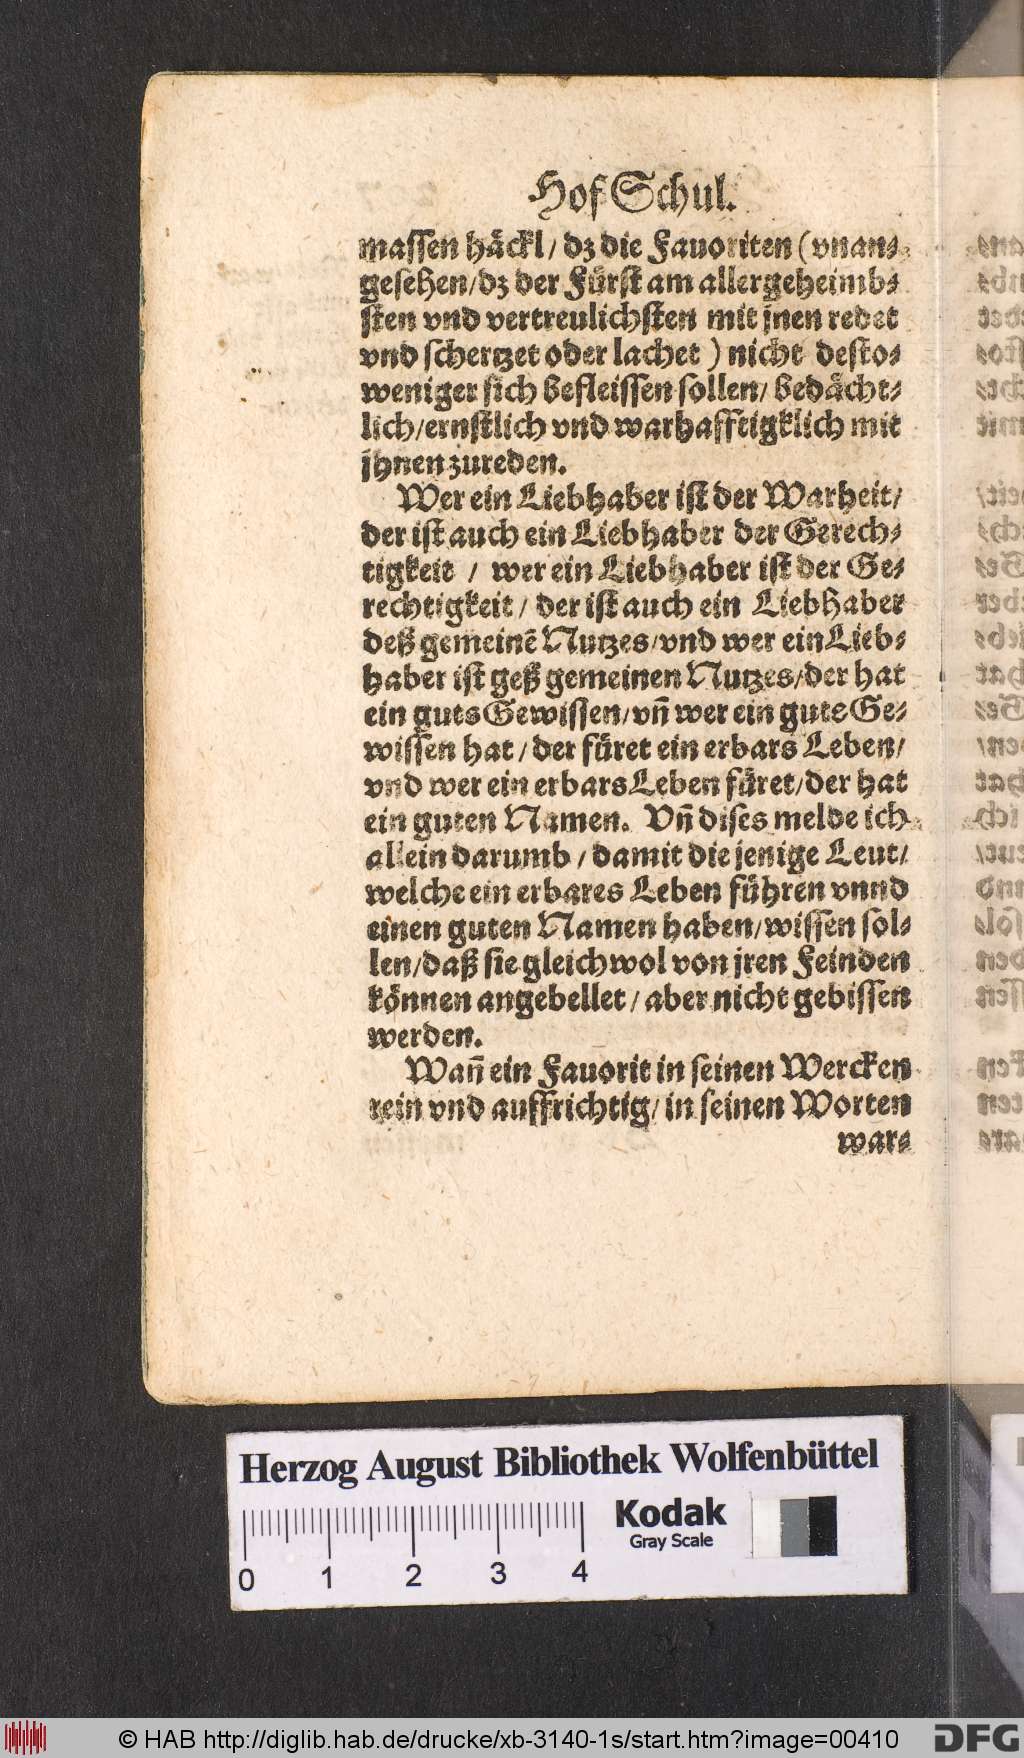 Hof Schul.
massen häckl / dz die Fauoriten (vnan⸗
gesehen/dz der Fürst am allergeheimb⸗
sten vnd vertreulichsten mit jnen redet
vnd schertzet oder lachet) nicht desto⸗
weniger sich befleissen sollen/ bedächt⸗
lich/ernstlich vnd warhafftigklich mit
jhnen zureden.
Wer ein Liebhaber ist der Warheit/
der ist auch ein Liebhaber der Gerech⸗
tigkeit / wer ein Liebhaber ist der Ge⸗
rechtigkeit / der ist auch ein Liebhaber
deß gemeinē Nutzes/vnd wer ein Lieb⸗
haber ist geß gemeinen Nutzes/der hat
ein guts Gewissen/vñ wer ein guts Ge⸗
wissen hat / der füret ein erbars Leben/
vnd wer ein erbars Leben füret/der hat
ein guten Namen. Vñ dises melde ich
allein darumb / damit die jenige Leut/
welche ein erbares Leben führen vnnd
einen guten Namen haben/wissen sol⸗
len/daß sie gleichwol von jren Feinden
können angebellet / aber nicht gebissen
werden.
Wañ ein Fauorit in seinen Wercken
rein vnd auffrichtig/ in seinen Worten
war⸗
Herzog August Bibliothek Wolfenbüttel
Kodak
Gray Scale
0 1 2 3 4
© HAB http://diglib.hab.de/drucke/xb-3140-1s/start.htm?image=00410
DFG